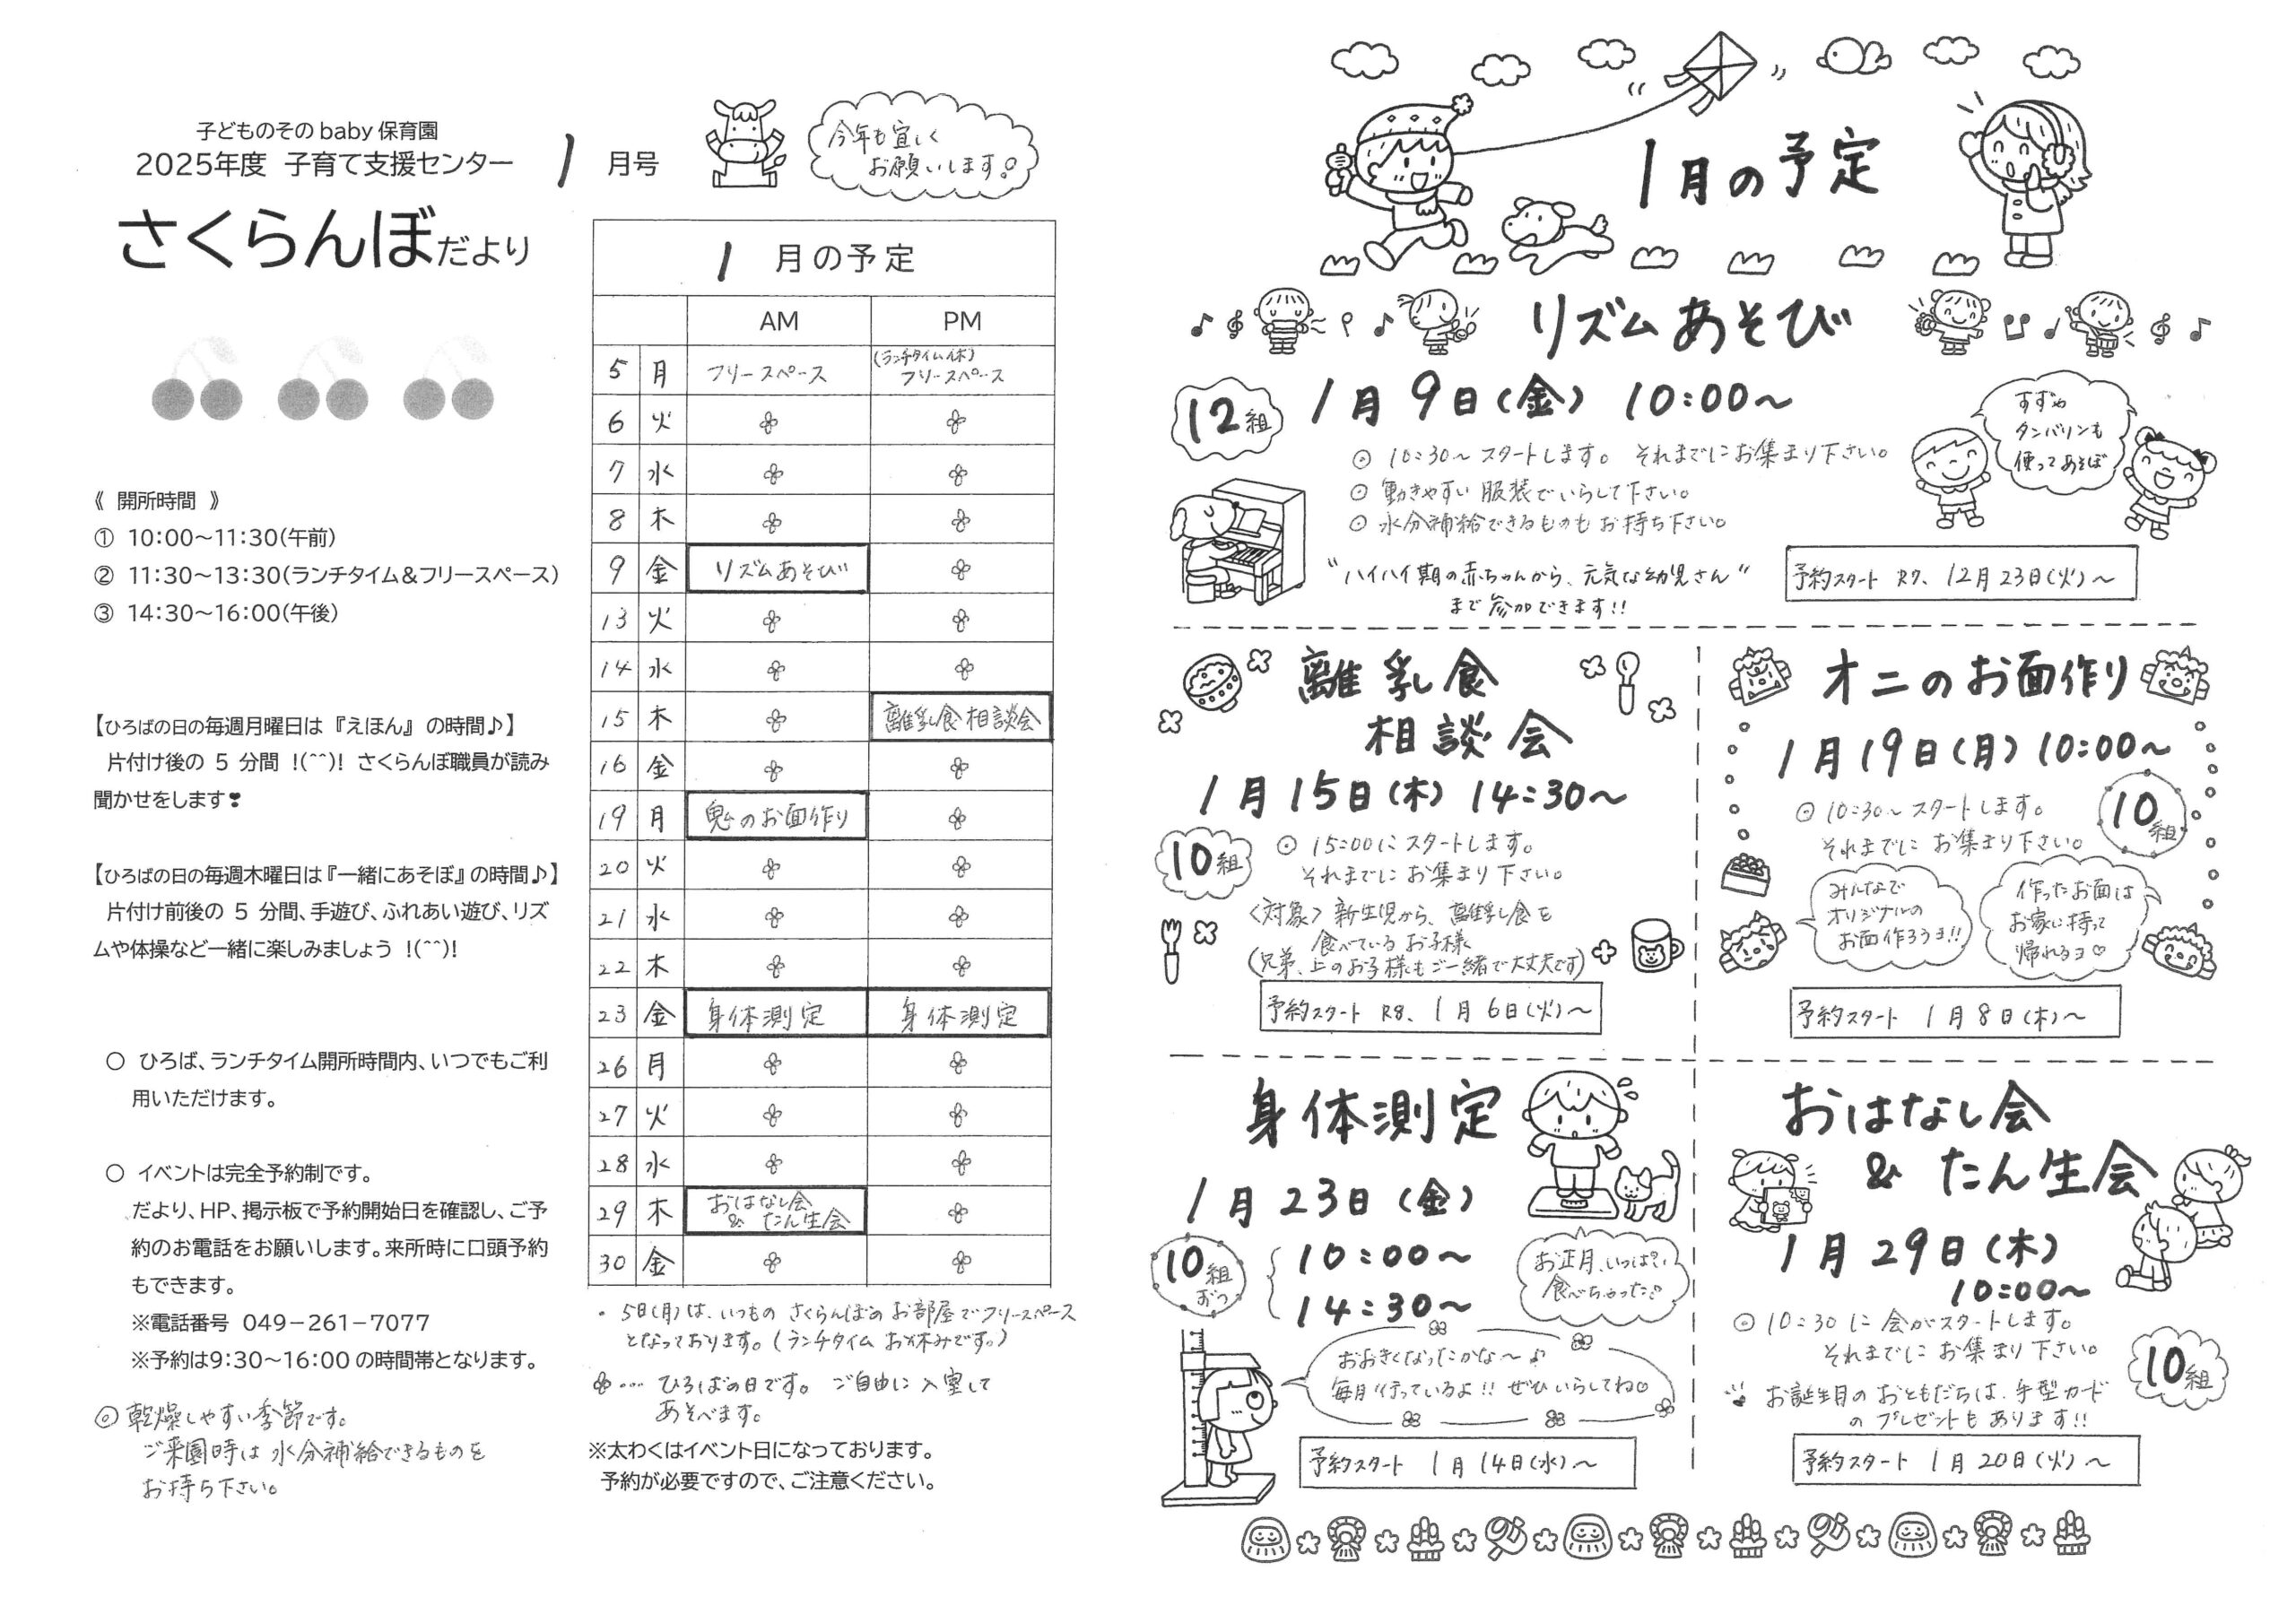 子どものそのbaby保育園
2025年度 子育て支援センター 1 月号
今年も宜しく
お願いします。
さくらんぼだより
《 開所時間 》
① 10:00～11:30(午前)
② 11:30～13:30(ランチタイム&フリースペース)
③ 14:30～16:00(午後)
【ひろばの日の毎週月曜日は『えほん』の時間♪】
片付け後の 5 分間 !(^^)! さくらんぼ職員が読み
聞かせをします❢
【ひろばの日の毎週木曜日は『一緒にあそぼ』の時間♪】
片付け前後の 5 分間、手遊び、ふれあい遊び、リズ
ムや体操など一緒に楽しみましょう !(^^)!
○ ひろば、ランチタイム開所時間内、いつでもご利
用いただけます。
○ イベントは完全予約制です。
だより、HP、掲示板で予約開始日を確認し、ご予
約のお電話をお願いします。来所時に口頭予約
もできます。
※電話番号 049－261－7077
※予約は9:30～16:00 の時間帯となります。
◎ 乾燥しやすい季節です。
ご来園時は 水分補給できるものを
お持ち下さい。
1 月の予定
AM PM
5 月 フリースペース (ランチタイム休) フリースペース
6 火
7 水
8 木
9 金 リズムあそび
13 火
14 水
15 木 離乳食相談会
16 金
19 月 鬼のお面作り
20 火
21 水
22 木
23 金 身体測定 身体測定
26 月
27 火
28 水
29 木 おはなし会 & たん生会
30 金
・5日(月)は、いつもの さくらんぼの お部屋でフリースペース
となっております。(ランチタイム お休みです。)
… ひろばの日です。 ご自由に入室して
あそべます。
※太わくはイベント日になっております。
予約が必要ですので、ご注意ください。
1月の予定
リズムあそび
12組
1月9日(金) 10:00～
◎ 10:30～スタートします。 それまでにお集まり下さい。
◎ 動きやすい服装でいらして下さい。
◎ 水分補給できるものもお持ち下さい。
すずや
タンバリンも
使ってあそぼ
"ハイハイ期の赤ちゃんから、元気な幼児さん"
まで参加できます!!
予約スタート R7、12月23日(火)～
離乳食
相談会
1月15日(木) 14:30～
10組
◎ 15:00にスタートします。
それまでに お集まり下さい。
〈対象〉新生児から、離乳食を
食べているお子様
(兄弟、上のお子様もご一緒で大丈夫です)
予約スタート R8、1月6日(火)～
オニのお面作り
1月19日(月) 10:00～
◎ 10:30～スタートします。
それまでに お集まり下さい。
10組
みんなで
オリジナルの
お面作ろうヨ!!
作ったお面は
お家に持って
帰れるヨ♡
予約スタート 1月8日(木)～
身体測定
1月23日(金)
10組ずつ
10:00～
14:30～
お正月、いっぱい
食べちゃった
おおきくなったかな～♪
毎月行っているよ!! ぜひいらしてね
予約スタート 1月14日(水)～
おはなし会
& たん生会
1月29日(木)
10:00～
◎ 10:30に会がスタートします。
それまでに お集まり下さい。
10組
お誕生月の おともだちは、手型カード
の プレゼントもあります!!
予約スタート 1月20日(火)～